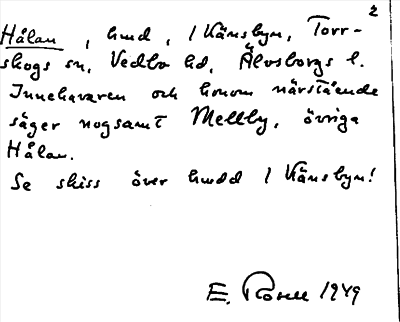 2
Hålan, hmd, 1 Känsbyn, Torr-
skogs sn, Vedbo hd, Älvsborgs l.
Innehavaren och honom närstående
säger nogsamt Mellby, övriga
Hålan.
Se skiss över hmdd 1 Känsbyn!
E. Rosell 1949